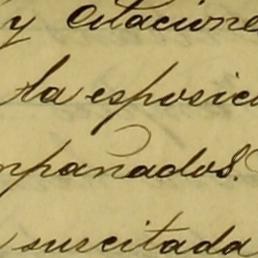 y citacione
la esposici
mpañados.
suscitada